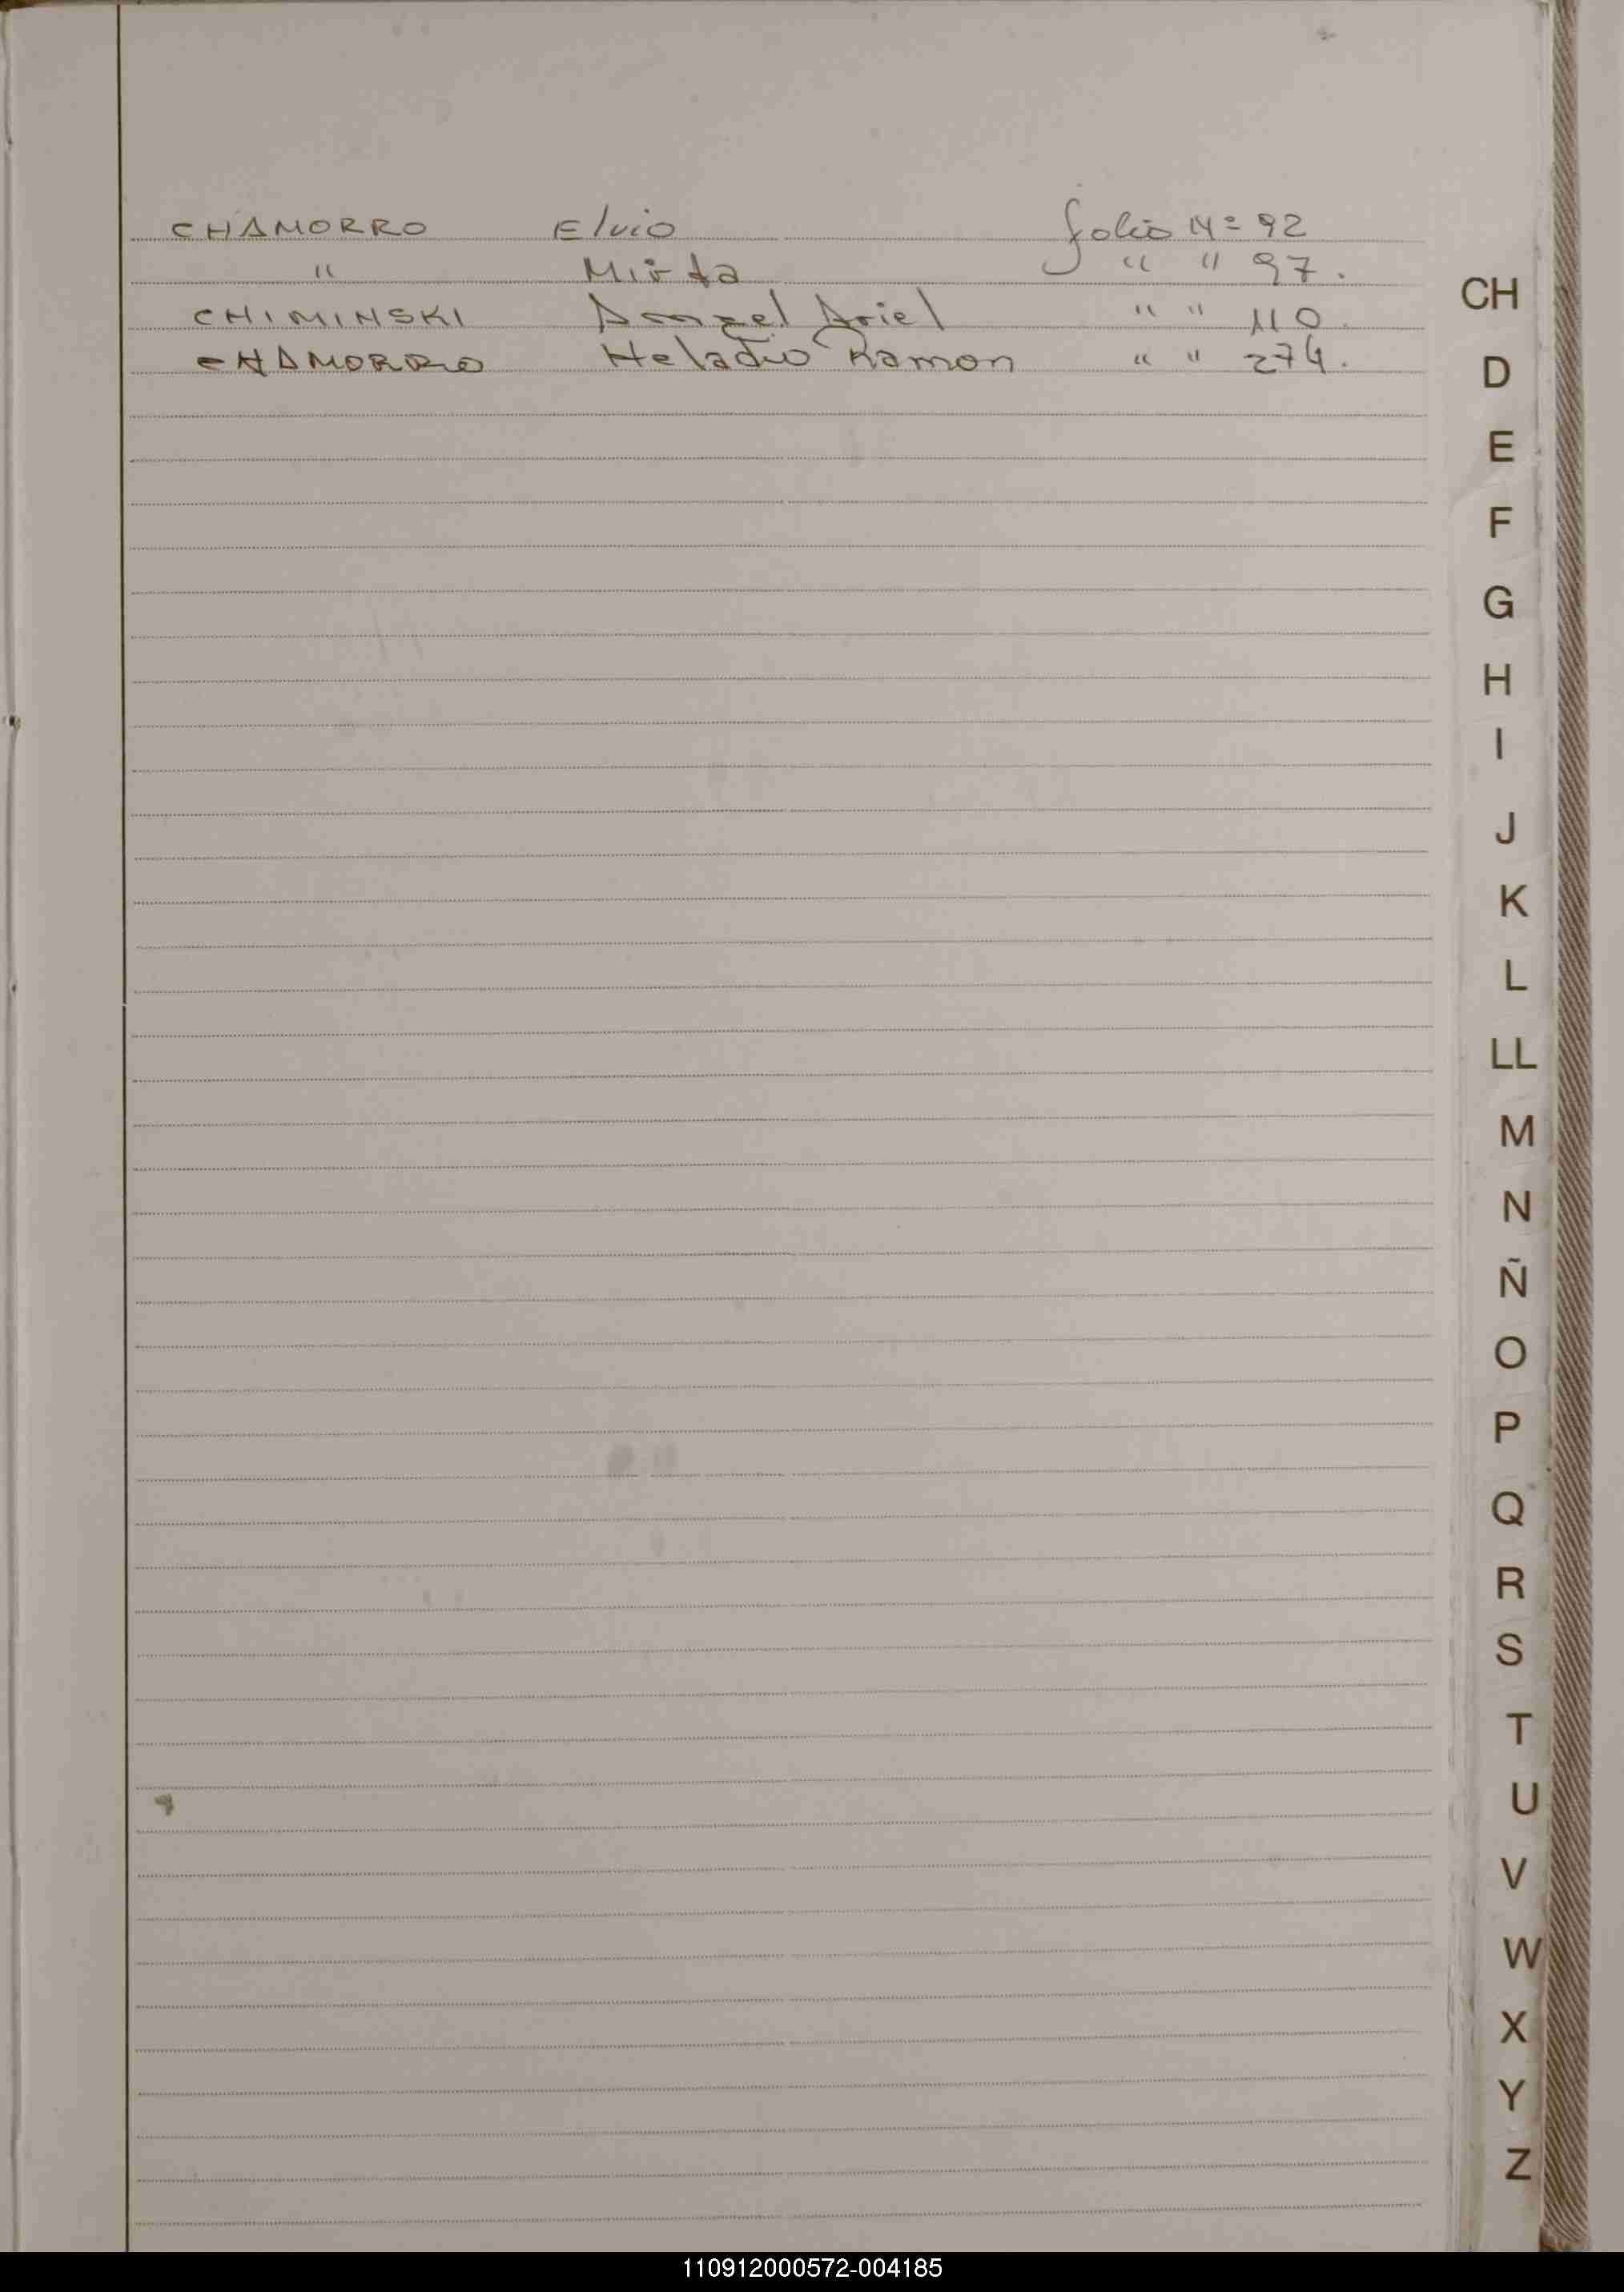 CHAMORRO Elvio folio Nº 92
" Mirta " " 97.
CHIMINSKI Angel Ariel " " 110.
CHAMORRO Heladio Ramon " " 274.
CH
D
E
F
G
H
I
J
K
L
LL
M
N
Ñ
O
P
Q
R
S
T
U
V
W
X
Y
Z
110912000572-004185